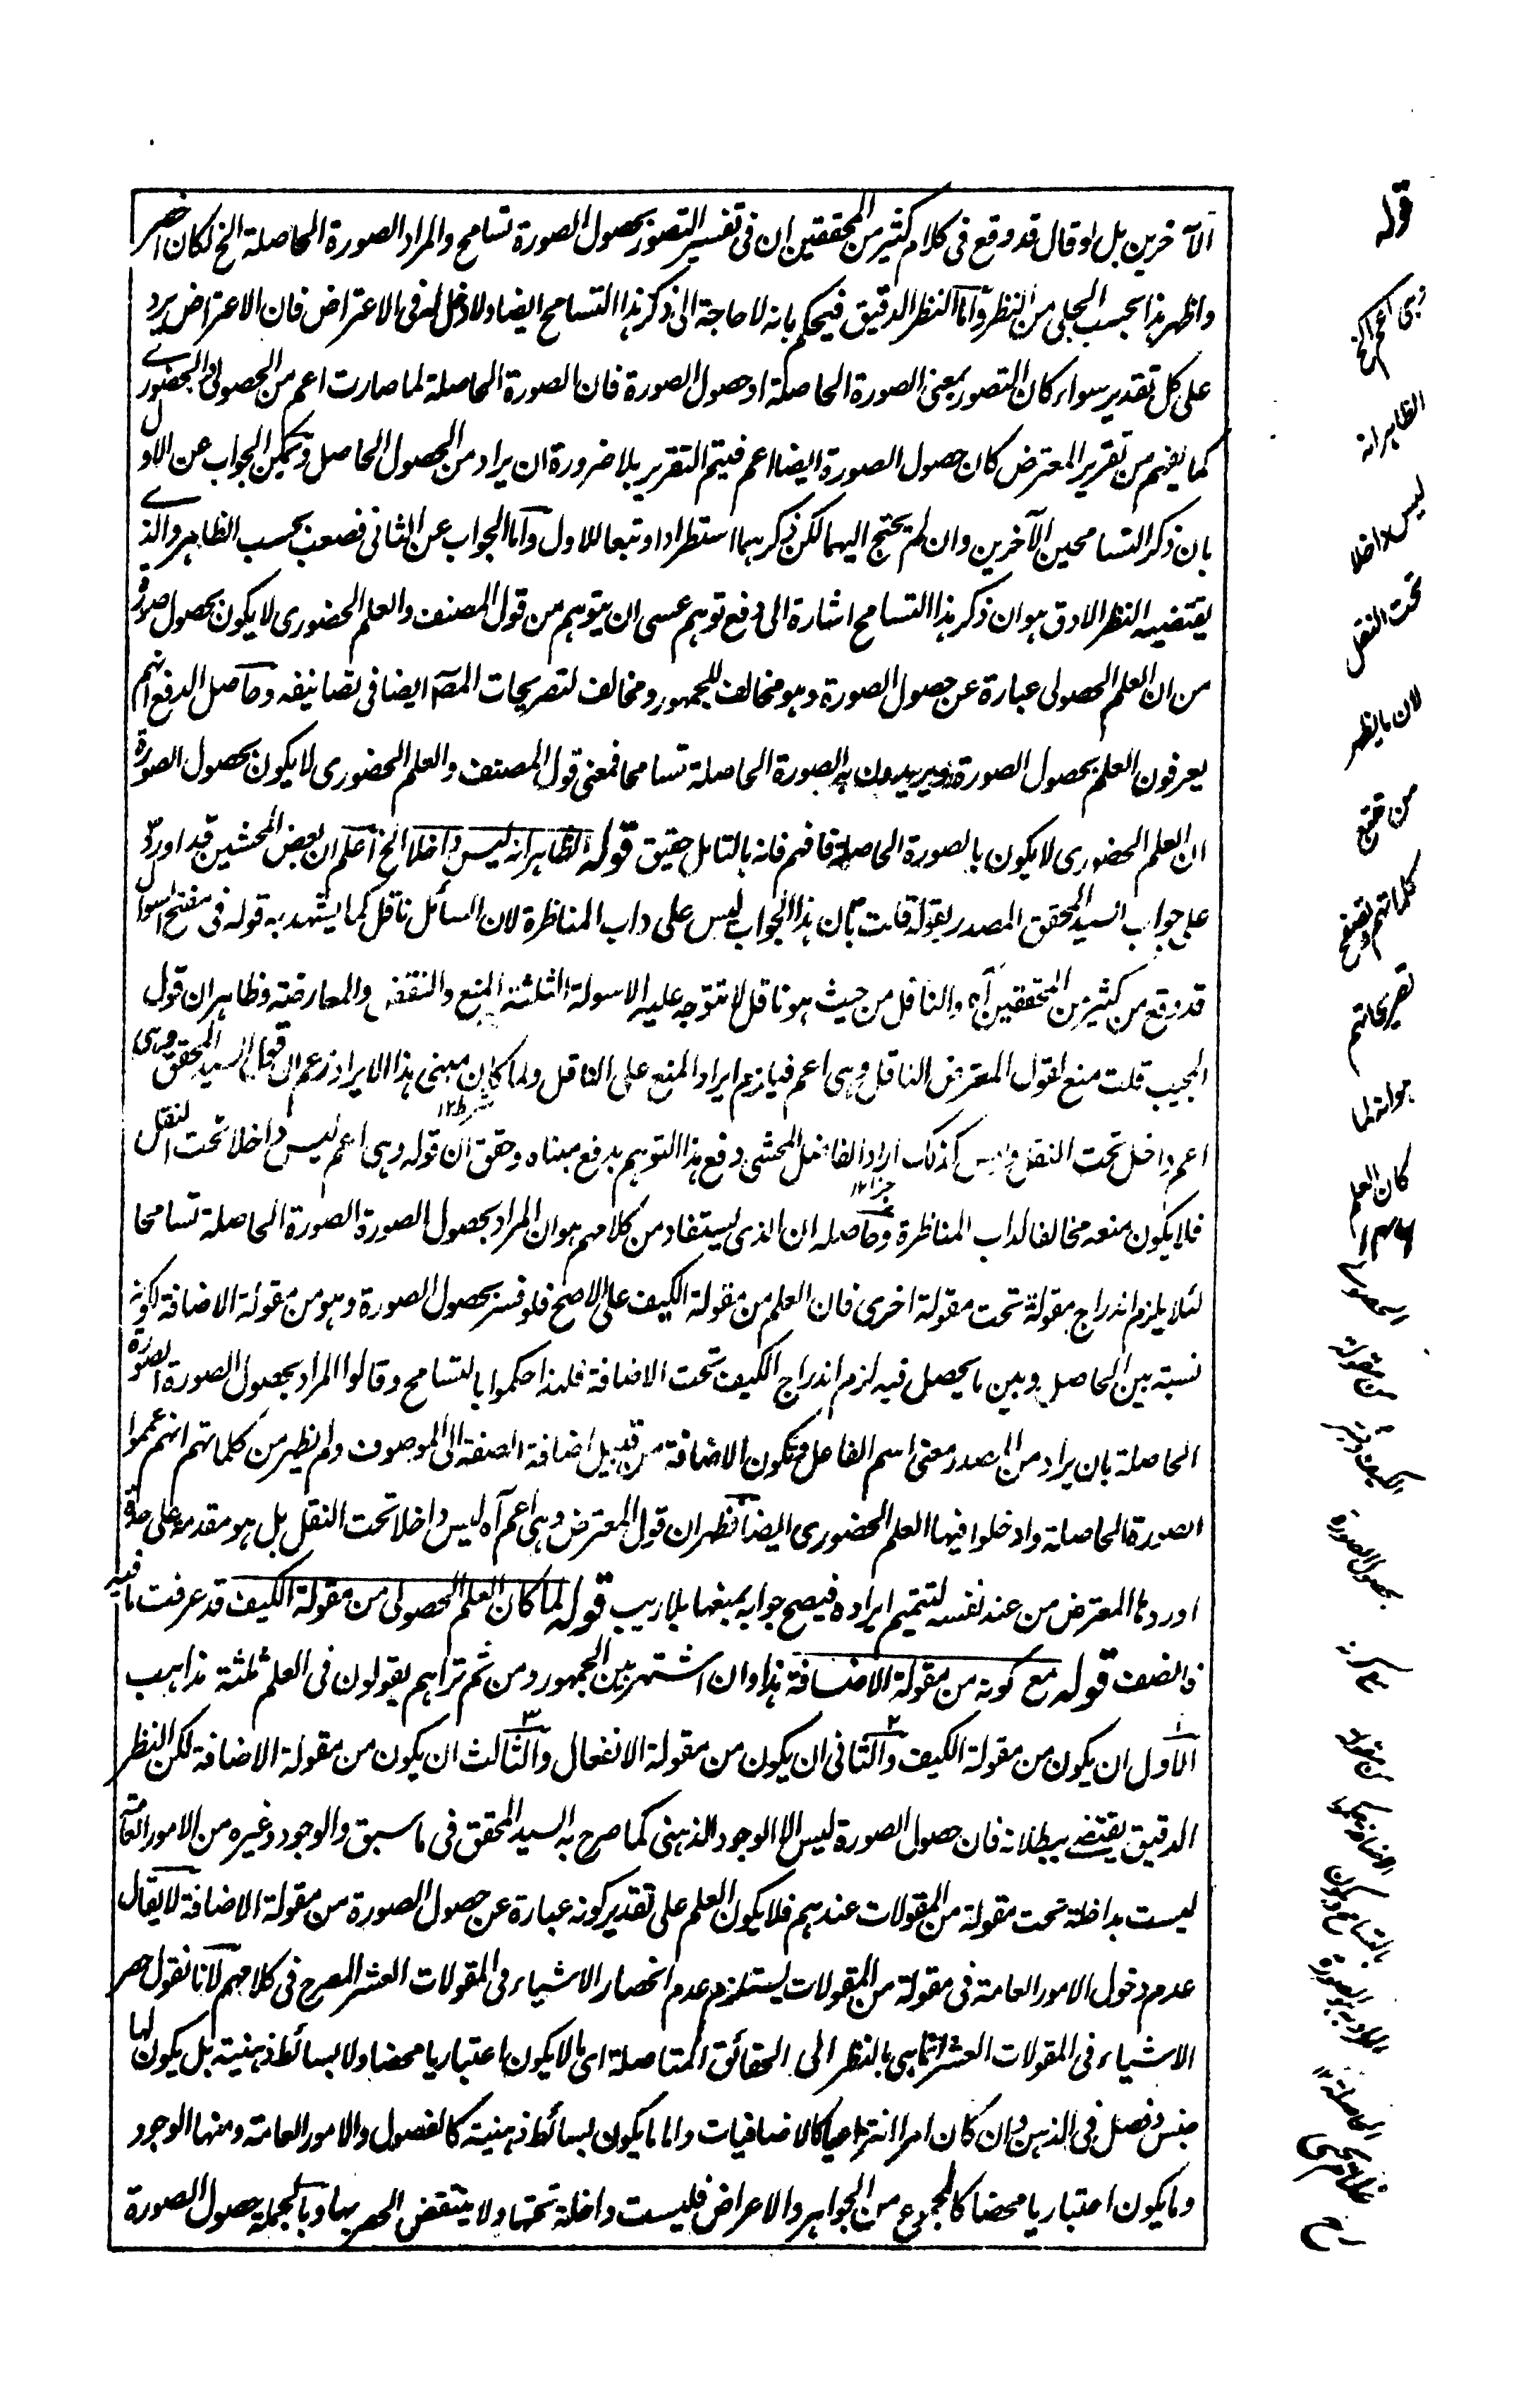 الآخرين بل لو قال قد وقع فى كلام كثير من المحققين ان فى تفسير التصور بحصول الصورة تسامح والمراد الصورة الحاصلة الخ لكان اخصر
واظهر هذا بحسب الجلى من النظر واما النظر الدقيق فيحكم بانه لا حاجة الى ذكر هذا التسامح ايضا ولا دخل له فى الاعتراض فان الاعتراض يرد
على كل تقدير سواء كان التصور بمعنى الصورة الحاصلة او حصول الصورة فان الصورة الحاصلة لما صارت اعم من الحصولى والحضورى
كما يفهم من تقرير المعترض كان حصول الصورة ايضا اعم فيتم التقرير بلا ضرورة ان يراد من الحصول الحاصل ويمكن الجواب عن الاول
بان ذكر التسامحين الآخرين وان لم يحتج اليهما لكن ذكرهما استطرادا وتبعا للاول واما الجواب عن الثانى فصعب بحسب الظاهر والذى
يقتضيه النظر الادق هو ان ذكر هذا التسامح اشارة الى دفع توهم عسى ان يتوهم من قول المصنف والعلم الحضورى لا يكون بحصول صورة
من ان العلم الحصولى عبارة عن حصول الصورة وهو مخالف للجمهور ومخالف لتصريحات المصـ ايضا فى تصانيفه وحاصل الدفع انهم
يعرفون العلم بحصول الصورة ويريدون به الصورة الحاصلة تسامحا فمعنى قول المصنف والعلم الحضورى لا يكون بحصول الصورة
ان العلم الحضورى لا يكون بالصورة الحاصلة فافهم فانه بالتامل حقيق قوله الظاهر انه ليس داخلا الخ اعلم ان بعض المحشين قد اورد
على جواب السيد المحقق المصدر بقوله قلت بان هذا الجواب ليس على داب المناظرة لان السائل ناقل كما يشهد به قوله فى مفتح السوال
قد وقع من كثير من المحققين آه والناقل من حيث هو ناقل لا تتوجه عليه الاسولة الثلثة المنع والنقض والمعارضة وظاهر ان قول
المجيب قلت منع لقول المعترض الناقل وهى اعم فيلزم ايراد المنع على الناقل ولما كان مبنى هذا الايراد زعم ان قول السيد المحقق وهى
شرط ١٢
اعم داخل تحت النقل وليس كذلك اراد الفاضل المحشى دفع هذا التوهم بدفع مبناه وحقق ان قوله وهى اعم ليس داخلا تحت النقل
جزا ١٢
فلا يكون منعه مخالفا لداب المناظرة وحاصله ان الذى يستفاد من كلامهم هو ان المراد بحصول الصورة الصورة الحاصلة تسامحا
لئلا يلزم اندراج مقولة تحت مقولة اخرى فان العلم من مقولة الكيف على الاصح فلو فسر بحصول الصورة وهو من مقولة الاضافة لكونه
نسبة بين الحاصل وبين ما يحصل فيه لزم اندراج الكيف تحت الاضافة فلهذا حكموا بالتسامح وقالوا المراد بحصول الصورة الصورة
الحاصلة بان يراد من المصدر معنى اسم الفاعل فتكون الاضافة من قبيل اضافة الصفة الى الموصوف ولم يظهر من كلماتهم انهم عمموا
الصورة الحاصلة وادخلوا فيها العلم الحضورى ايضا فظهر ان قول المعترض وهى اعم آه ليس داخلا تحت النقل بل هو مقدمة على حدة
اوردها المعترض من عند نفسه لتتميم ايراده فيصح جوابه بمنعها بلا ريب قوله لما كان العلم الحصولى من مقولة الكيف قد عرفت ما فيه
فانصف قوله مع كونه من مقولة الاضافة هذا وان اشتهر بين الجمهور ومن ثم تراهم يقولون فى العلم ثلثة مذاهب
الاول ان يكون من مقولة الكيف والثانى ان يكون من مقولة الانفعال والثالث ان يكون من مقولة الاضافة لكن النظر
الدقيق يقتضى ببطلانه فان حصول الصورة ليس الا الوجود الذهنى كما صرح به السيد المحقق فى ما سبق والوجود وغيره من الامور العامة
ليست بداخلة تحت مقولة من المقولات عندهم فلا يكون العلم على تقدير كونه عبارة عن حصول الصورة من مقولة الاضافة لا يقال
عدم دخول الامور العامة فى مقولة من المقولات يستلزم عدم انحصار الاشياء فى المقولات العشر المصرح فى كلامهم لانا نقول حصر
الاشياء فى المقولات العشر انما هى بالنظر الى الحقائق المتاصلة اى ما لا يكون اعتباريا محضا ولا بسائط ذهنية بل يكون لها
جنس وفصل فى الذهن وان كان امرا انتزاعيا كالاضافيات واما ما يكون بسائط ذهنية كالفصول والامور العامة ومنها الوجود
وما يكون اعتباريا محضا كالمجموع من الجواهر والاعراض فليست داخلة تحتها ولا ينتقض الحصر بها وبالجملة حصول الصورة
قوله
وهى اعم الخ
الظاهر انه
ليس داخلا
تحت النقل
لان ما يظهر
من تتبع
كلماتهم وتصفح
تصريحاتهم
هو انه لما
كان العلم
الحصولى
من مقولة
الكيف وتفسيره
بحصول الصورة
مع كونه
من مقولة
الاضافة حكموا
بالتسامح وبان
المراد به الصورة
الحاصلة